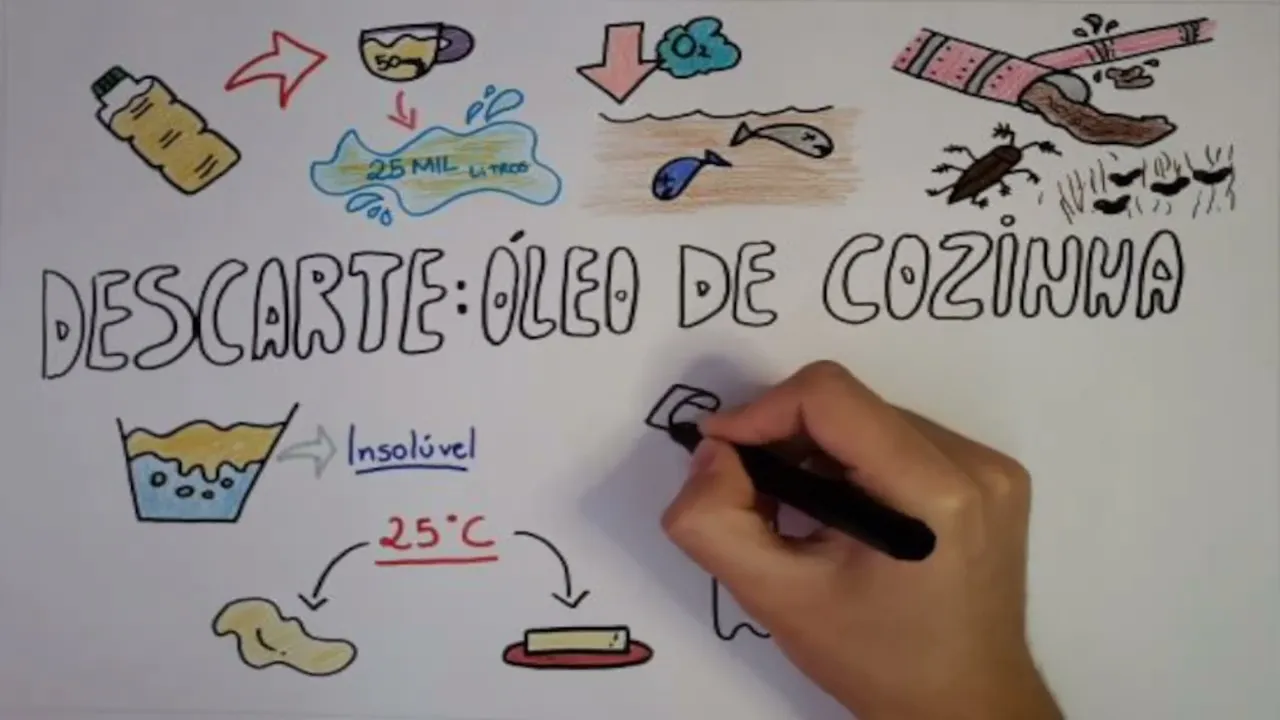 50mg
O2
25 MIL LITROS
DESCARTE: ÓLEO DE COZINHA
Insolúvel
25°C